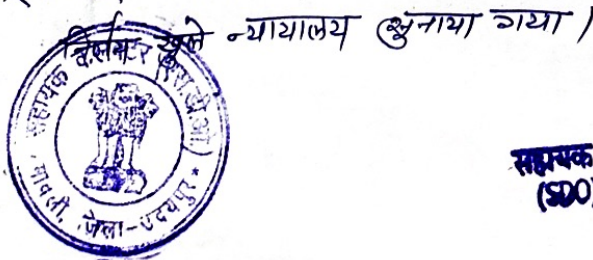 निर्णय खुले न्यायालय सुनाया गया /
सहायक कलेक्टर (एस.डी.ओ)
मावली, जिला-उदयपुर
सहायक
(SDO)